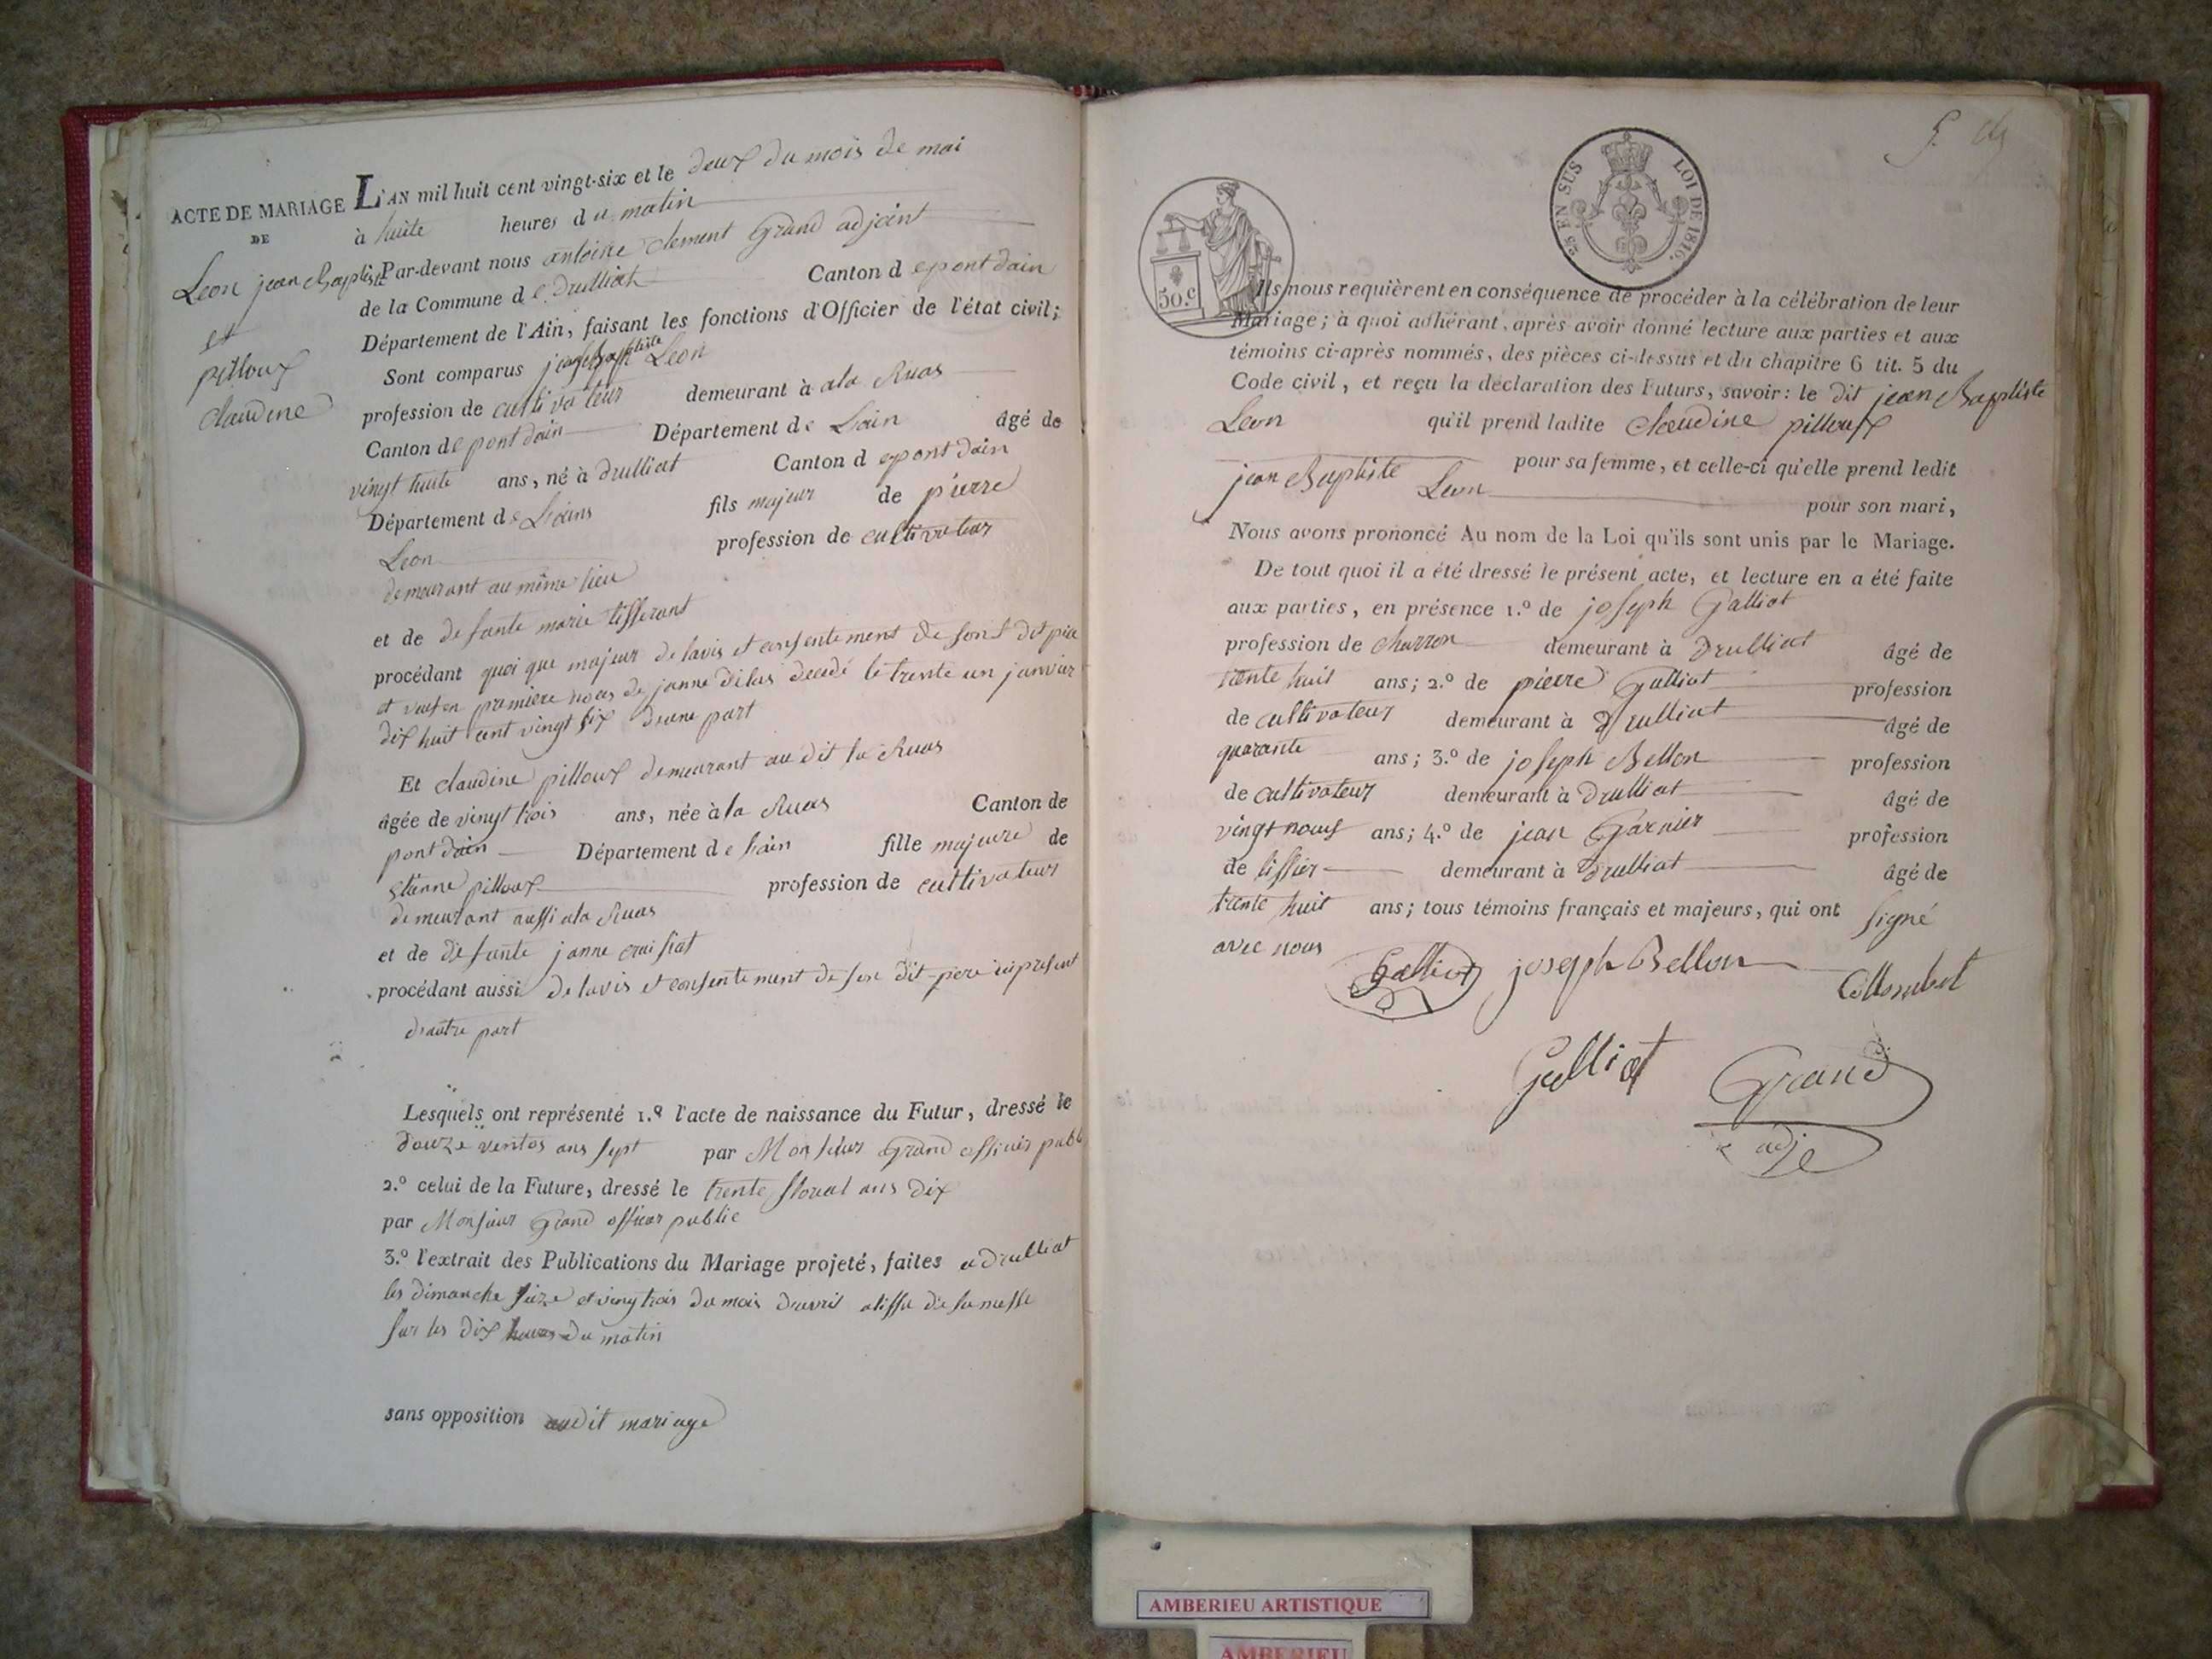 ACTE DE MARIAGE
DE
Leon jean Baptiste
et
pilloux
claudine
L'AN mil huit cent vingt-six et le deux du mois de mai
à huite heures du matin
Par-devant nous antoine clement Grand adjoint
de la Commune de druilliat Canton d epont dain
Département de l'Ain, faisant les fonctions d'Officier de l'état civil;
Sont comparus jean Baptiste Leon
profession de cultivateur demeurant à ala Ruas
Canton de pont dain Département de Lain âgé de
vingt huite ans, né à druilliat Canton d epont dain
Département de Lains fils majeur de pierre
Leon profession de cultivateur
demeurant au même lieu
et de defunte marie tisserant
procédant quoi que majeur de lavis et consentement de sont dit père
et veuf en premiere noces de janne dilas decedé le trente un janvier
dix huit cent vingt six d'une part
Et claudine pilloux demeurant au dit la Ruas
âgée de vingt trois ans, née à la Ruas Canton de
pont dain Département de Lain fille majeure de
etienne pilloux profession de cultivateur
demeurant aussi ala Ruas
et de defunte janne
procédant aussi de lavis et consentement de son dit père ici présent
d'autre part
Lesquels ont représenté 1.º l'acte de naissance du Futur, dressé le
douze ventos ans sept par Monsieur Grand officier publ
2.º celui de la Future, dressé le trente floreal ans dix
par Monsieur Grand officier public
3.º l'extrait des Publications du Mariage projeté, faites a druilliat
les dimanche seize et vingt trois du mois davril alissu de la messe
sur les dix heures du matin
sans opposition audit mariage
25 EN SUS LOI DE 1816.
50.c
Ils nous requièrent en conséquence de procéder à la célébration de leur
Mariage; à quoi adhérant, après avoir donné lecture aux parties et aux
témoins ci-après nommés, des pièces ci-dessus et du chapitre 6 tit. 5 du
Code civil, et reçu la déclaration des Futurs, savoir: le dit jean Baptiste
Leon qu'il prend ladite Claudine pilloux
pour sa femme, et celle-ci qu'elle prend ledit
jean Baptiste Leon pour son mari,
Nous avons prononcé Au nom de la Loi qu'ils sont unis par le Mariage.
De tout quoi il a été dressé le présent acte, et lecture en a été faite
aux parties, en présence 1.º de joseph Galliat
profession de charron demeurant à druilliat âgé de
trente huit ans; 2.º de pierre Galliat profession
de cultivateur demeurant à druilliat âgé de
quarante ans; 3.º de joseph Bellon profession
de cultivateur demeurant à druilliat âgé de
vingt noeuf ans; 4.º de jean Garnier profession
de tissier demeurant à druilliat âgé de
trente huit ans; tous témoins français et majeurs, qui ont signé
avec nous
Galliat joseph Bellon
Galliat Grand
adj
AMBERIEU ARTISTIQUE
AMBERIEU